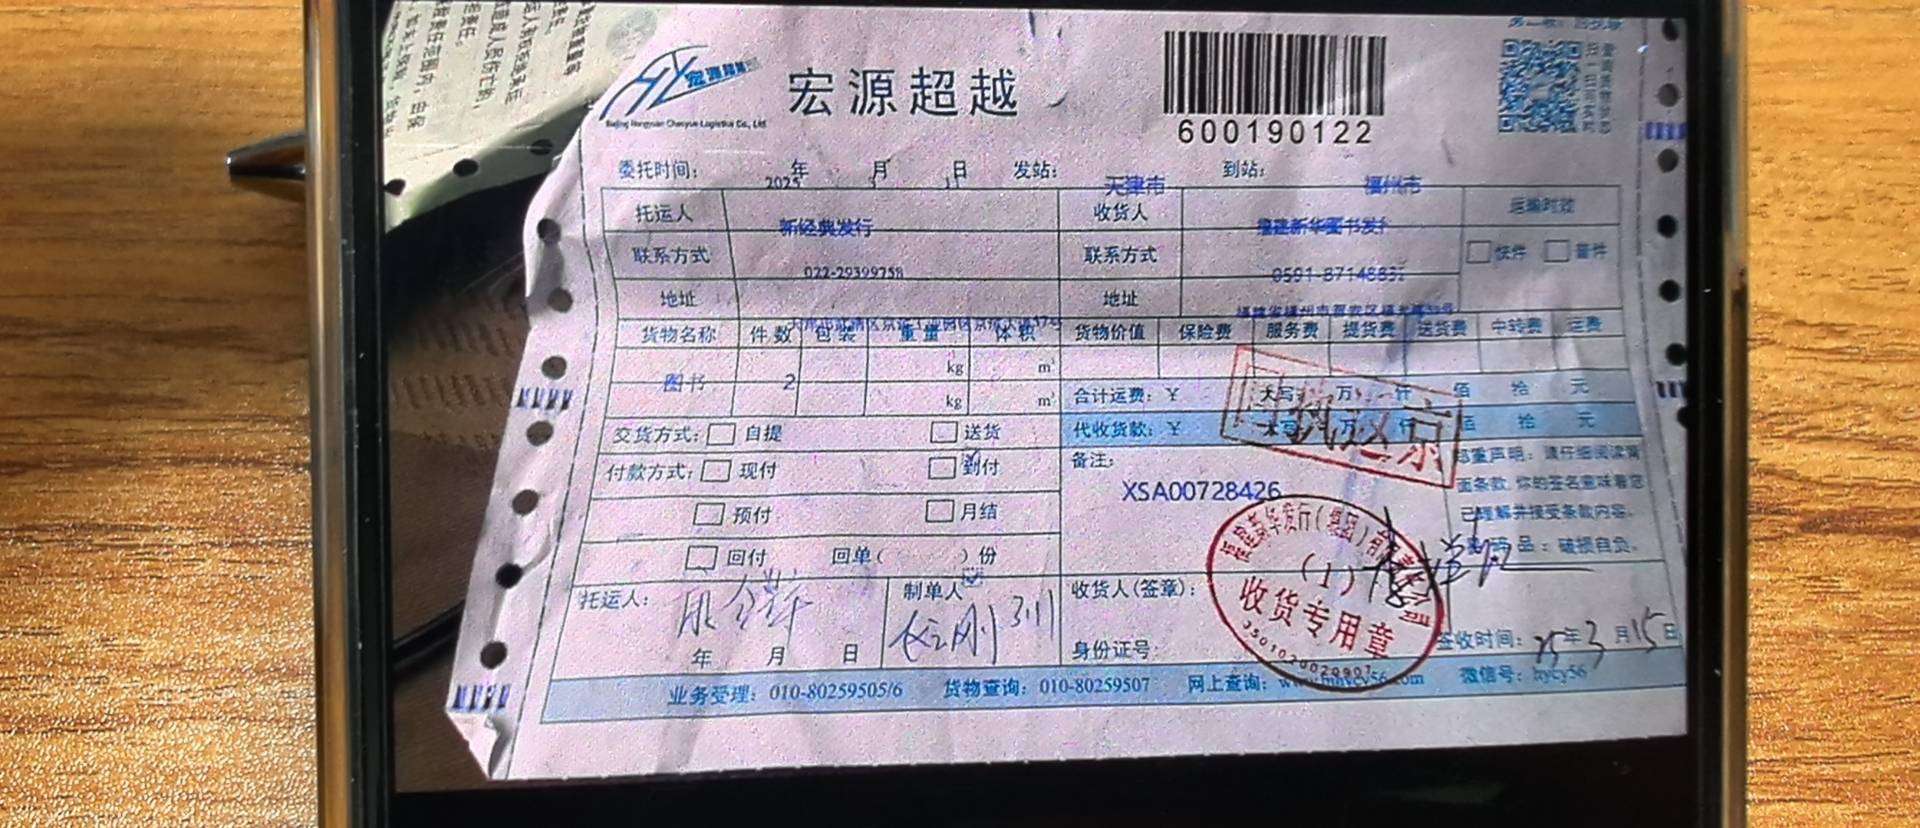 宏源超越
Beijing Hongyuan Chaoyue Logistics Co., Ltd.
600190122
委托时间： 2025 年 3 月 11 日 发站： 天津市 到站： 福州市
托运人 新经典发行 收货人 福建新华图书发行 运输时效
联系方式 022-29399758 联系方式 0591-8714883 快件 普件
地址 地址
货物名称 件数 包装 重量 体积 货物价值 保险费 服务费 提货费 送货费 中转费 运费
图书 2 kg m³
kg m³
合计运费：￥ 大写 万 仟 佰 拾 元
代收货款：￥ 大写 万 仟 佰 拾 元
回执返京
交货方式： 自提 送货
付款方式： 现付 到付
预付 月结
回付 回单( )份
备注：
XSA00728426
郑重声明：请仔细阅读背
面条款，你的签名意味着您
已理解并接受条款内容。
品：破损自负。
托运人： 年 月 日
制单人 3.11
收货人(签章)：
身份证号：
签收时间：25年3月15日
福建新华发行(集团)有限责任公司
(1)
收货专用章
3501020020907
业务受理：010-80259505/6 货物查询：010-80259507 网上查询： 微信号：hycy56